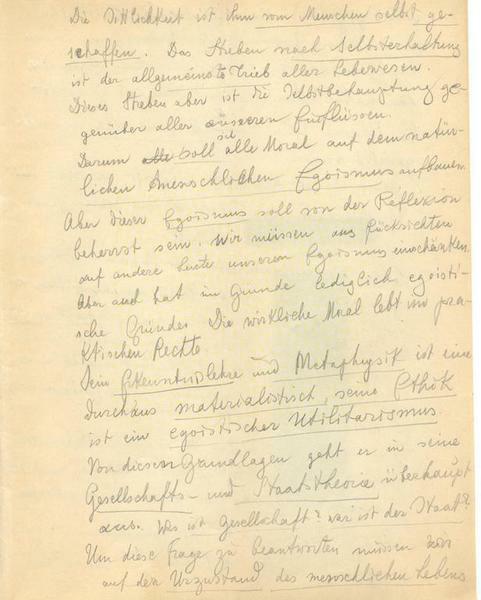 Die Sittlichkeit ist ihm vom Menschen selbst ge-
schaffen. Das Streben nach Selbsterhaltung
ist der allgemeinste Trieb aller Lebewesen.
Dieses Streben aber ist die Selbstbehauptung ge-
genüber aller äusseren Einflüssen.
Darum soll sie alle Moral auf dem natür-
lichen menschlichen Egoismus aufbauen.
Aber dieser Egoismus soll von der Reflexion
beherrst sein. Wir müssen aus Rücksichten
auf andere Leute unseren Egoismus einschänken
Aber auch hat im Grunde lediglich egoisti-
sche Gründe. Die wirkliche Moral lebt im pra-
ktischen Rechte
Sein Erkenntnislehre und Metaphysik ist eine
durchaus materialistisch, seine Ethik
ist ein egoistischer Utilitarismus.
Von diesen Grundlagen geht er in seine
Gesellschafts- und Staatstheorie überhaupt
aus. Was ist Gesellschaft? was ist der Staat?
Um diese Frage zu beantworten müssen wir
auf den Urzustand des menschlichen Lebens